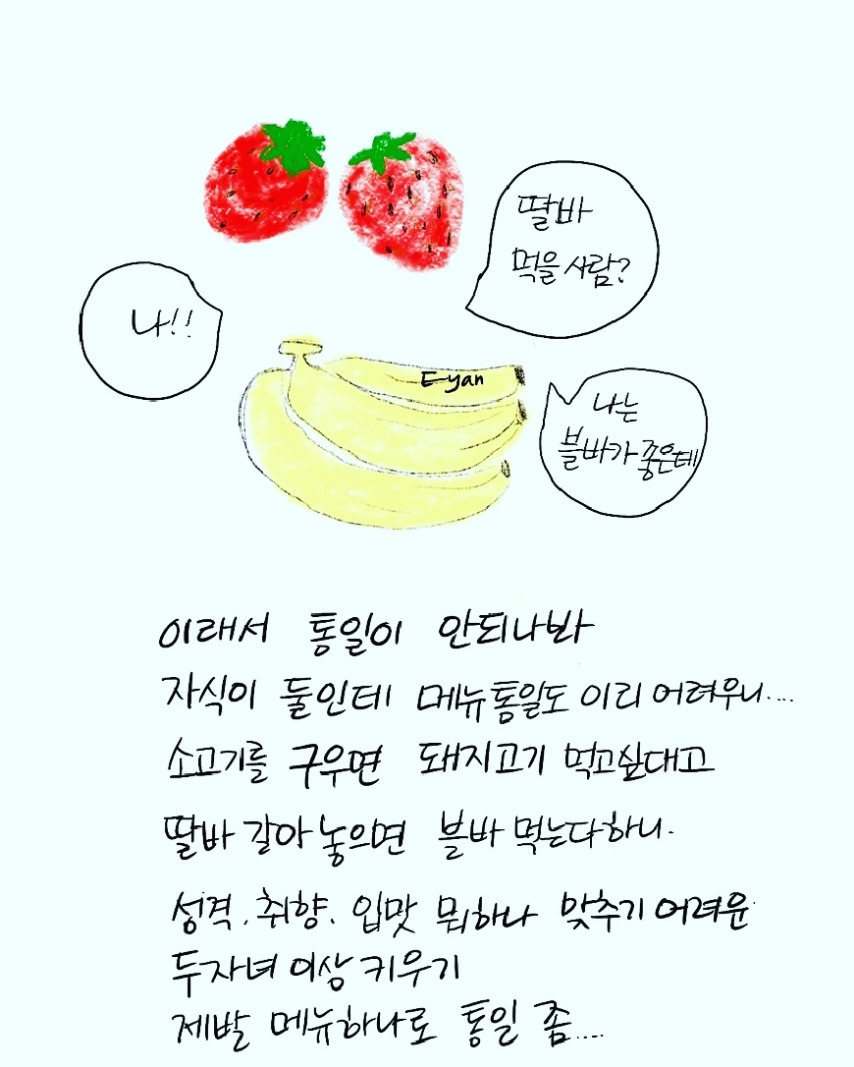 딸바
먹을 사람?
나!!
E-yan
나는
블바가 좋은데
이래서 통일이 안되나봐
자식이 둘인데 메뉴통일도 이리 어려우니....
소고기를 구우면 돼지고기 먹고싶대고
딸바 갈아 놓으면 블바 먹는다하니.
성격.취향. 입맛 뭐하나 맞추기 어려운
두자녀 이상 키우기
제발 메뉴하나로 통일 좀....